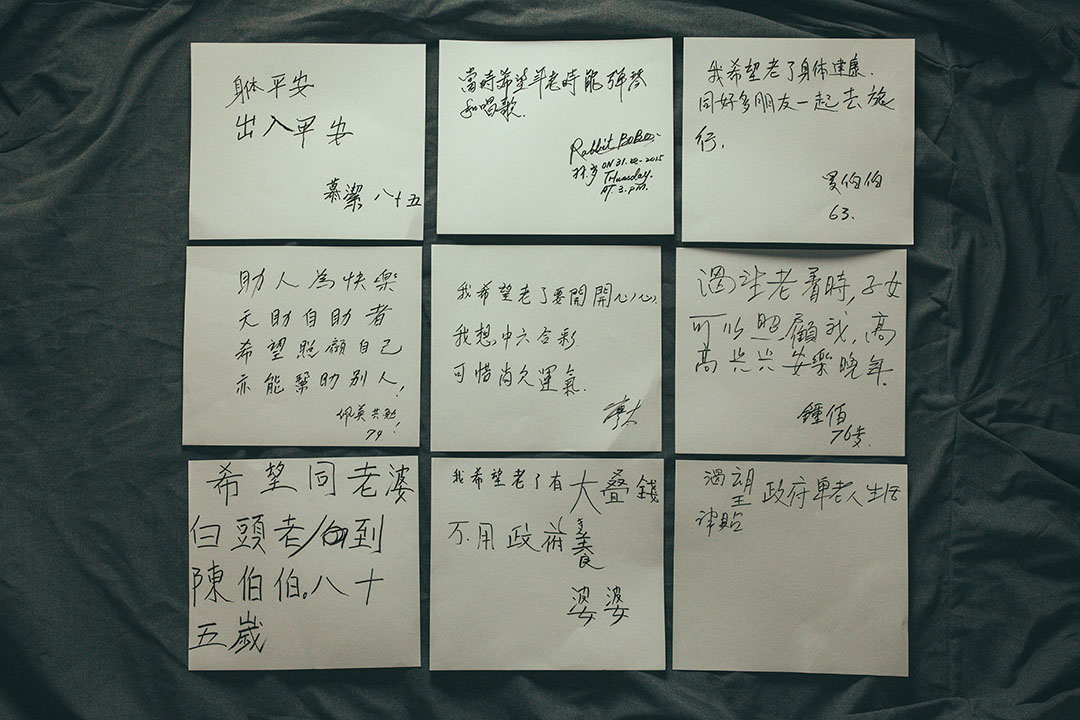 身体平安
出入平安
慕潔 八十五
當時希望年老時能彈琴
和唱歌.
Rabbit BoBo.
ON 31.12-2015
Thursday.
AT 3.pm.
我希望老了身体健康.
同好多朋友一起去旅
行.
罗伯伯
63.
助人為快樂
天助自助者
希望照顧自己
亦能幫助別人!
佩英共勉!
79
我希望老了要開開心心.
我想中六合彩
可惜尚欠運氣.
老着時,子女
可以照顧我,高
高兴兴安樂晚年.
鍾佰
76歲.
希望同老婆
白頭老到
陳伯伯。八十
五歲
我希望老了有大叠錢
不用政府養
婆婆
望政府單老人生活
津貼